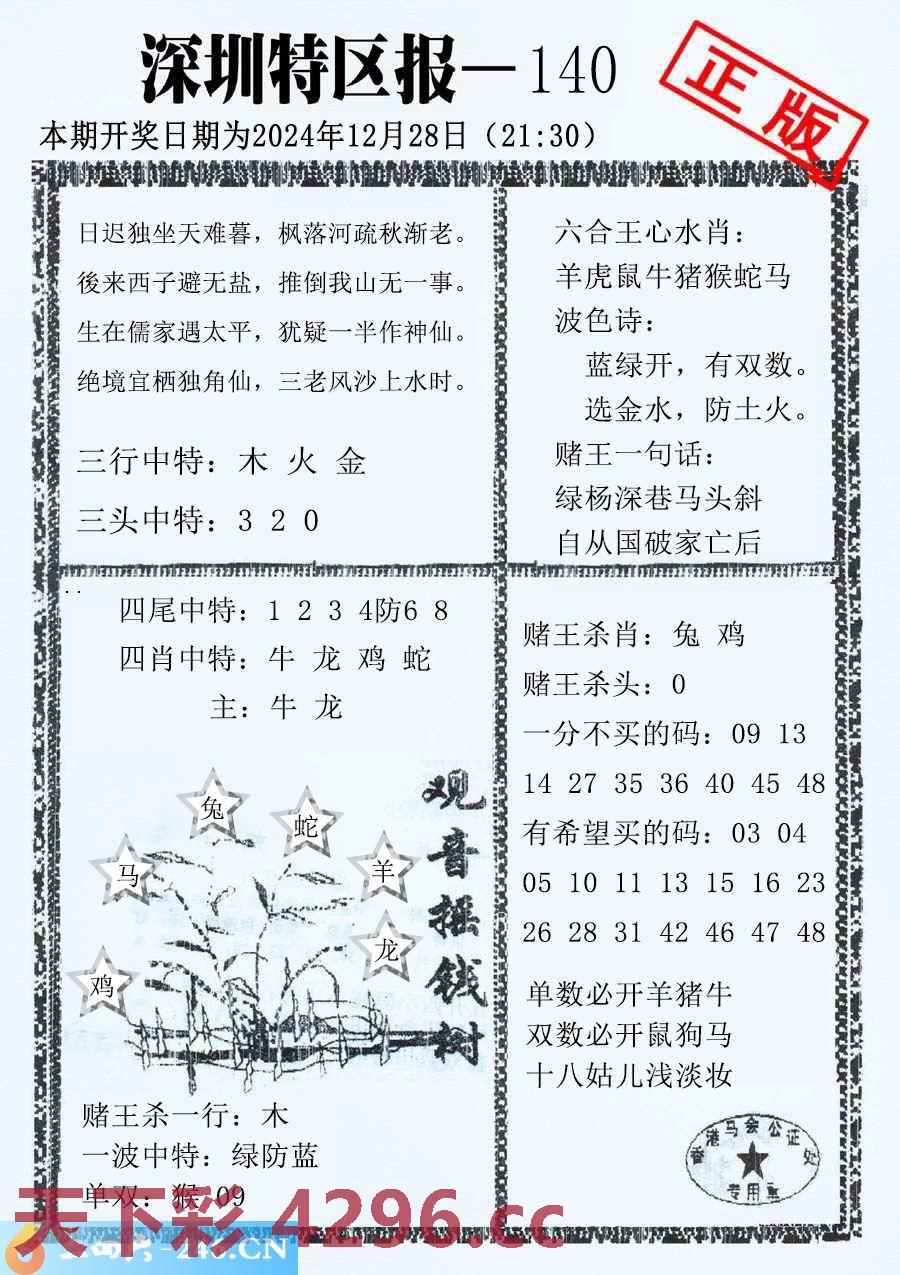 深圳特区报—140
正版
本期开奖日期为2024年12月28日（21:30）
日迟独坐天难暮，枫落河疏秋渐老。
後来西子避无盐，推倒我山无一事。
生在儒家遇太平，犹疑一半作神仙。
绝境宜栖独角仙，三老风沙上水时。
三行中特：木 火 金
三头中特：3 2 0
六合王心水肖：
羊虎鼠牛猪猴蛇马
波色诗：
蓝绿开，有双数。
选金水，防土火。
赌王一句话：
绿杨深巷马头斜
自从国破家亡后
四尾中特：1 2 3 4防6 8
四肖中特：牛 龙 鸡 蛇
主：牛 龙
兔
蛇
马
羊
龙
鸡
观音摇钱树
赌王杀一行：木
一波中特：绿防蓝
单双：猴 09
赌王杀肖：兔 鸡
赌王杀头：0
一分不买的码：09 13
14 27 35 36 40 45 48
有希望买的码：03 04
05 10 11 13 15 16 23
26 28 31 42 46 47 48
单数必开羊猪牛
双数必开鼠狗马
十八姑儿浅淡妆
香港马会公证处
专用章
天下彩 4296.cc